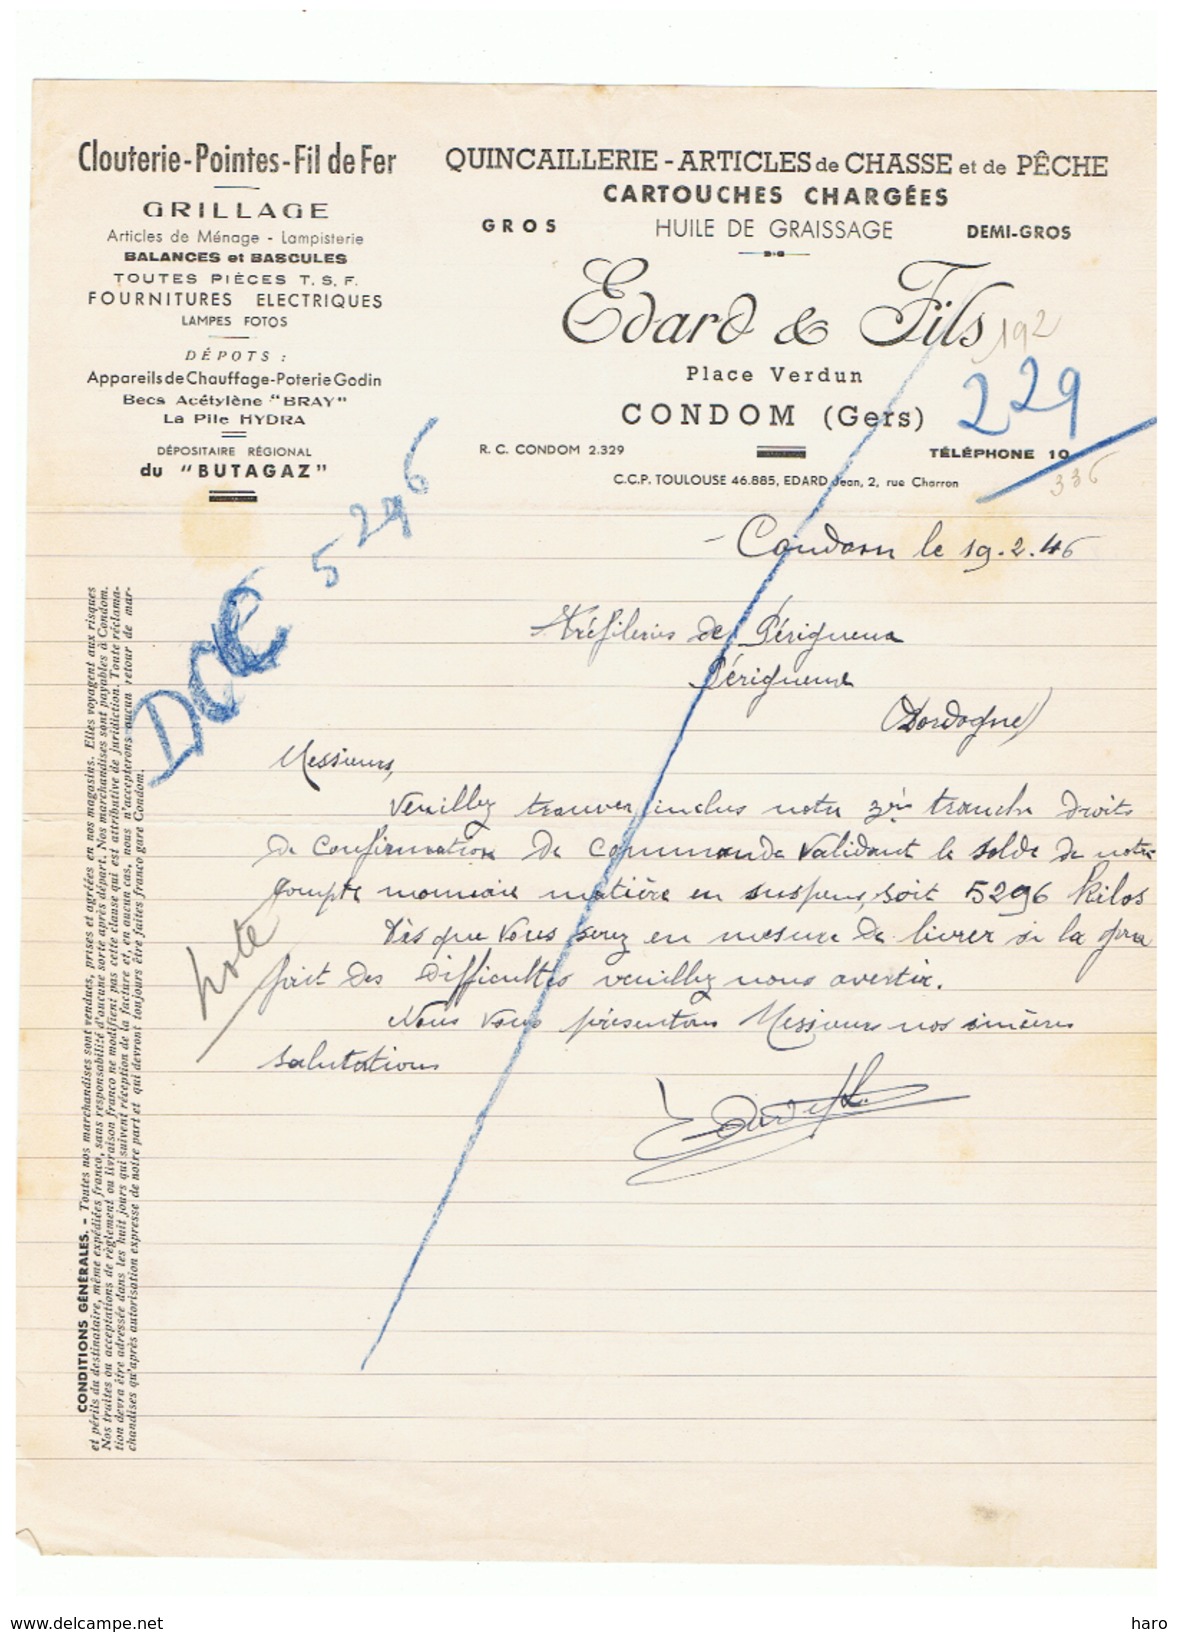 Clouterie-Pointes-Fil de Fer
GRILLAGE
Articles de Ménage - Lampisterie
BALANCES et BASCULES
TOUTES PIÈCES T. S. F.
FOURNITURES ELECTRIQUES
LAMPES FOTOS
DÉPOTS :
Appareils de Chauffage-Poterie Godin
Becs Acétylène "BRAY"
La Pile HYDRA
DÉPOSITAIRE RÉGIONAL
du "BUTAGAZ"
QUINCAILLERIE - ARTICLES de CHASSE et de PÊCHE
CARTOUCHES CHARGÉES
GROS HUILE DE GRAISSAGE DEMI-GROS
Edard & Fils
192
Place Verdun
229
CONDOM (Gers)
R. C. CONDOM 2.329
TÉLÉPHONE 10
C.C.P. TOULOUSE 46.885, EDARD Jean, 2, rue Charron
336
5296
Condom le 19.2.46
Tréfileries de Périgueux
Périgueux
(Dordogne)
Messieurs,
Veuillez trouver inclus notre 3èm tranche droits
de confirmation de commande validant le solde de notre
compte monnaie matière en suspens, soit 5296 kilos
Dès que vous serez en mesure de livrer si la gare
fait des difficultés veuillez nous avertir.
Nous vous présentons Messieurs nos sincères
salutations
note
CONDITIONS GÉNÉRALES. - Toutes nos marchandises sont vendues, prises et agréées en nos magasins. Elles voyagent aux risques
et périls du destinataire, même expédiées franco, sans responsabilité d'aucune sorte après départ. Nos marchandises sont payables à Condom.
Nos traites ou acceptations de règlement ou livraison franco ne modifient pas cette clause qui est attributive de juridiction. Toute réclama-
tion devra être adressée dans les huit jours qui suivent réception de la facture et, en aucun cas, nous n'accepterons aucun retour de mar-
chandises qu'après autorisation expresse de notre part et qui devront toujours être faites franco gare Condom.
www.delcampe.net
haro